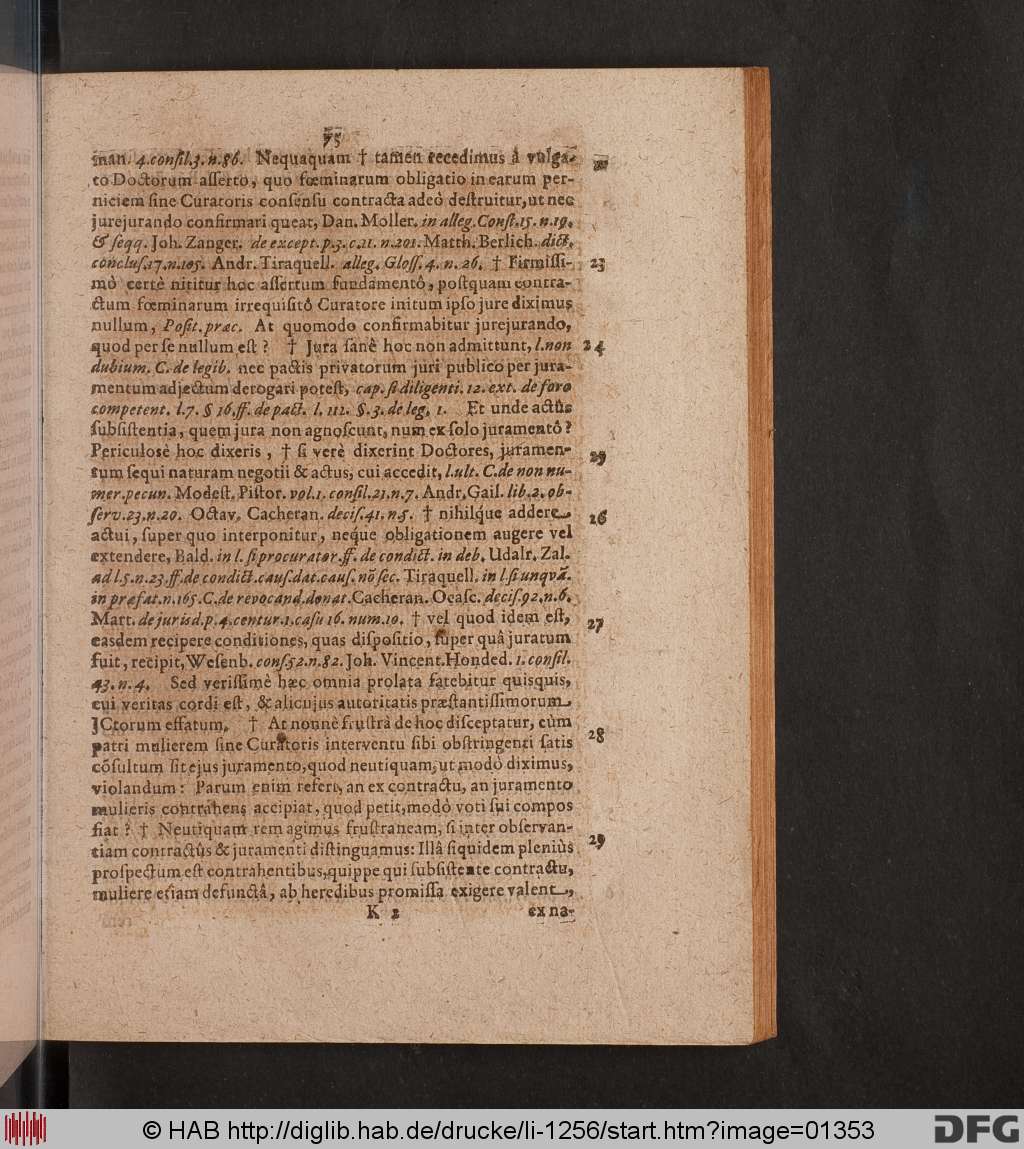 75
man. 4. conſil. 3. n. 86. Nequaquam † tamen recedimus â vulga-
to Doctorum aſſerto, quo fœminarum obligatio in earum per-
niciem ſine Curatoris conſenſu contracta adeò deſtruitur, ut nec
jurejurando confirmari queat, Dan. Moller. in alleg. Conſt. 15. n. 19.
& ſeqq. Joh. Zanger. de except. p. 3. c. 11. n. 201. Matth. Berlich. dict.
concluſ. 17. n. 105. Andr. Tiraquell. alleg. Gloſſ. 4. n. 26. † Firmiſſi- 23
mò certè nititur hoc aſſertum fundamentô, poſtquam contra-
ctum fœminarum irrequiſitô Curatore initum ipſo jure diximus
nullum, Poſit. præc. At quomodo confirmabitur jurejurando,
quod per ſe nullum eſt? † Jura ſanè hoc non admittunt, l. non 24
dubium. C. de legib. nec pactis privatorum juri publico per jura-
mentum adjectum derogari poteſt, cap. ſi diligenti. 12. ext. de foro
competent. l. 7. § 16. ff. de pact. l. 112. §. 3. de leg. 1. Et unde actûs
ſubſiſtentia, quem jura non agnoſcunt, num ex ſolo juramentô?
Periculosè hoc dixeris, † ſi verè dixerint Doctores, juramen- 25
tum ſequi naturam negotii & actus, cui accedit, l. ult. C. de non nu-
mer. pecun. Modeſt. Piſtor. vol. 1. conſil. 21. n. 7. Andr. Gail. lib. 2. ob-
ſerv. 23. n. 20. Octav. Cacheran. deciſ. 41. n. 5. † nihilq́ue addere 26
actui, ſuper quo interponitur, neq́ue obligationem augere vel
extendere, Bald. in l. ſi procurator. ff. de condict. in deb. Udalr. Zal.
ad l. 5. n. 23. ff. de condict. cauſ. dat. cauſ. nõ ſec. Tiraquell. in l. ſi unqvã.
in præfat. n. 165. C. de revocand. donat. Cacheran. Ocaſc. deciſ. 92. n. 6.
Mart. de jurisd. p. 4. centur. 1. caſu 16. num. 10. † vel quod idem eſt, 27
easdem recipere conditiones, quas diſpoſitio, ſuper quâ juratum
fuit, recipit, Weſenb. conſ. 52. n. 82. Joh. Vincent. Honded. 1. conſil.
43. n. 4. Sed veriſſimè hæc omnia prolata fatebitur quisquis,
cui veritas cordi eſt, & alicujus autoritatis præſtantiſſimorum
JCtorum effatum. † At nonnè fruſtrà de hoc diſceptatur, cùm 28
patri mulierem ſine Curatoris interventu ſibi obſtringenti ſatis
cõſultum ſit ejus juramento, quod neutiquam, ut modò diximus,
violandum: Parum enim refert, an ex contractu, an juramento
mulieris contrahens accipiat, quod petit, modò voti ſui compos
fiat? † Neutiquam rem agimus fruſtraneam, ſi inter obſervan- 29
tiam contractûs & juramenti diſtinguamus: Illâ ſiquidem pleniùs
proſpectum eſt contrahentibus, quippe qui ſubſiſtente contractu,
muliere etiam defunctâ, ab heredibus promiſſa exigere valent,
K 2 ex na-
© HAB http://diglib.hab.de/drucke/li-1256/start.htm?image=01353
DFG